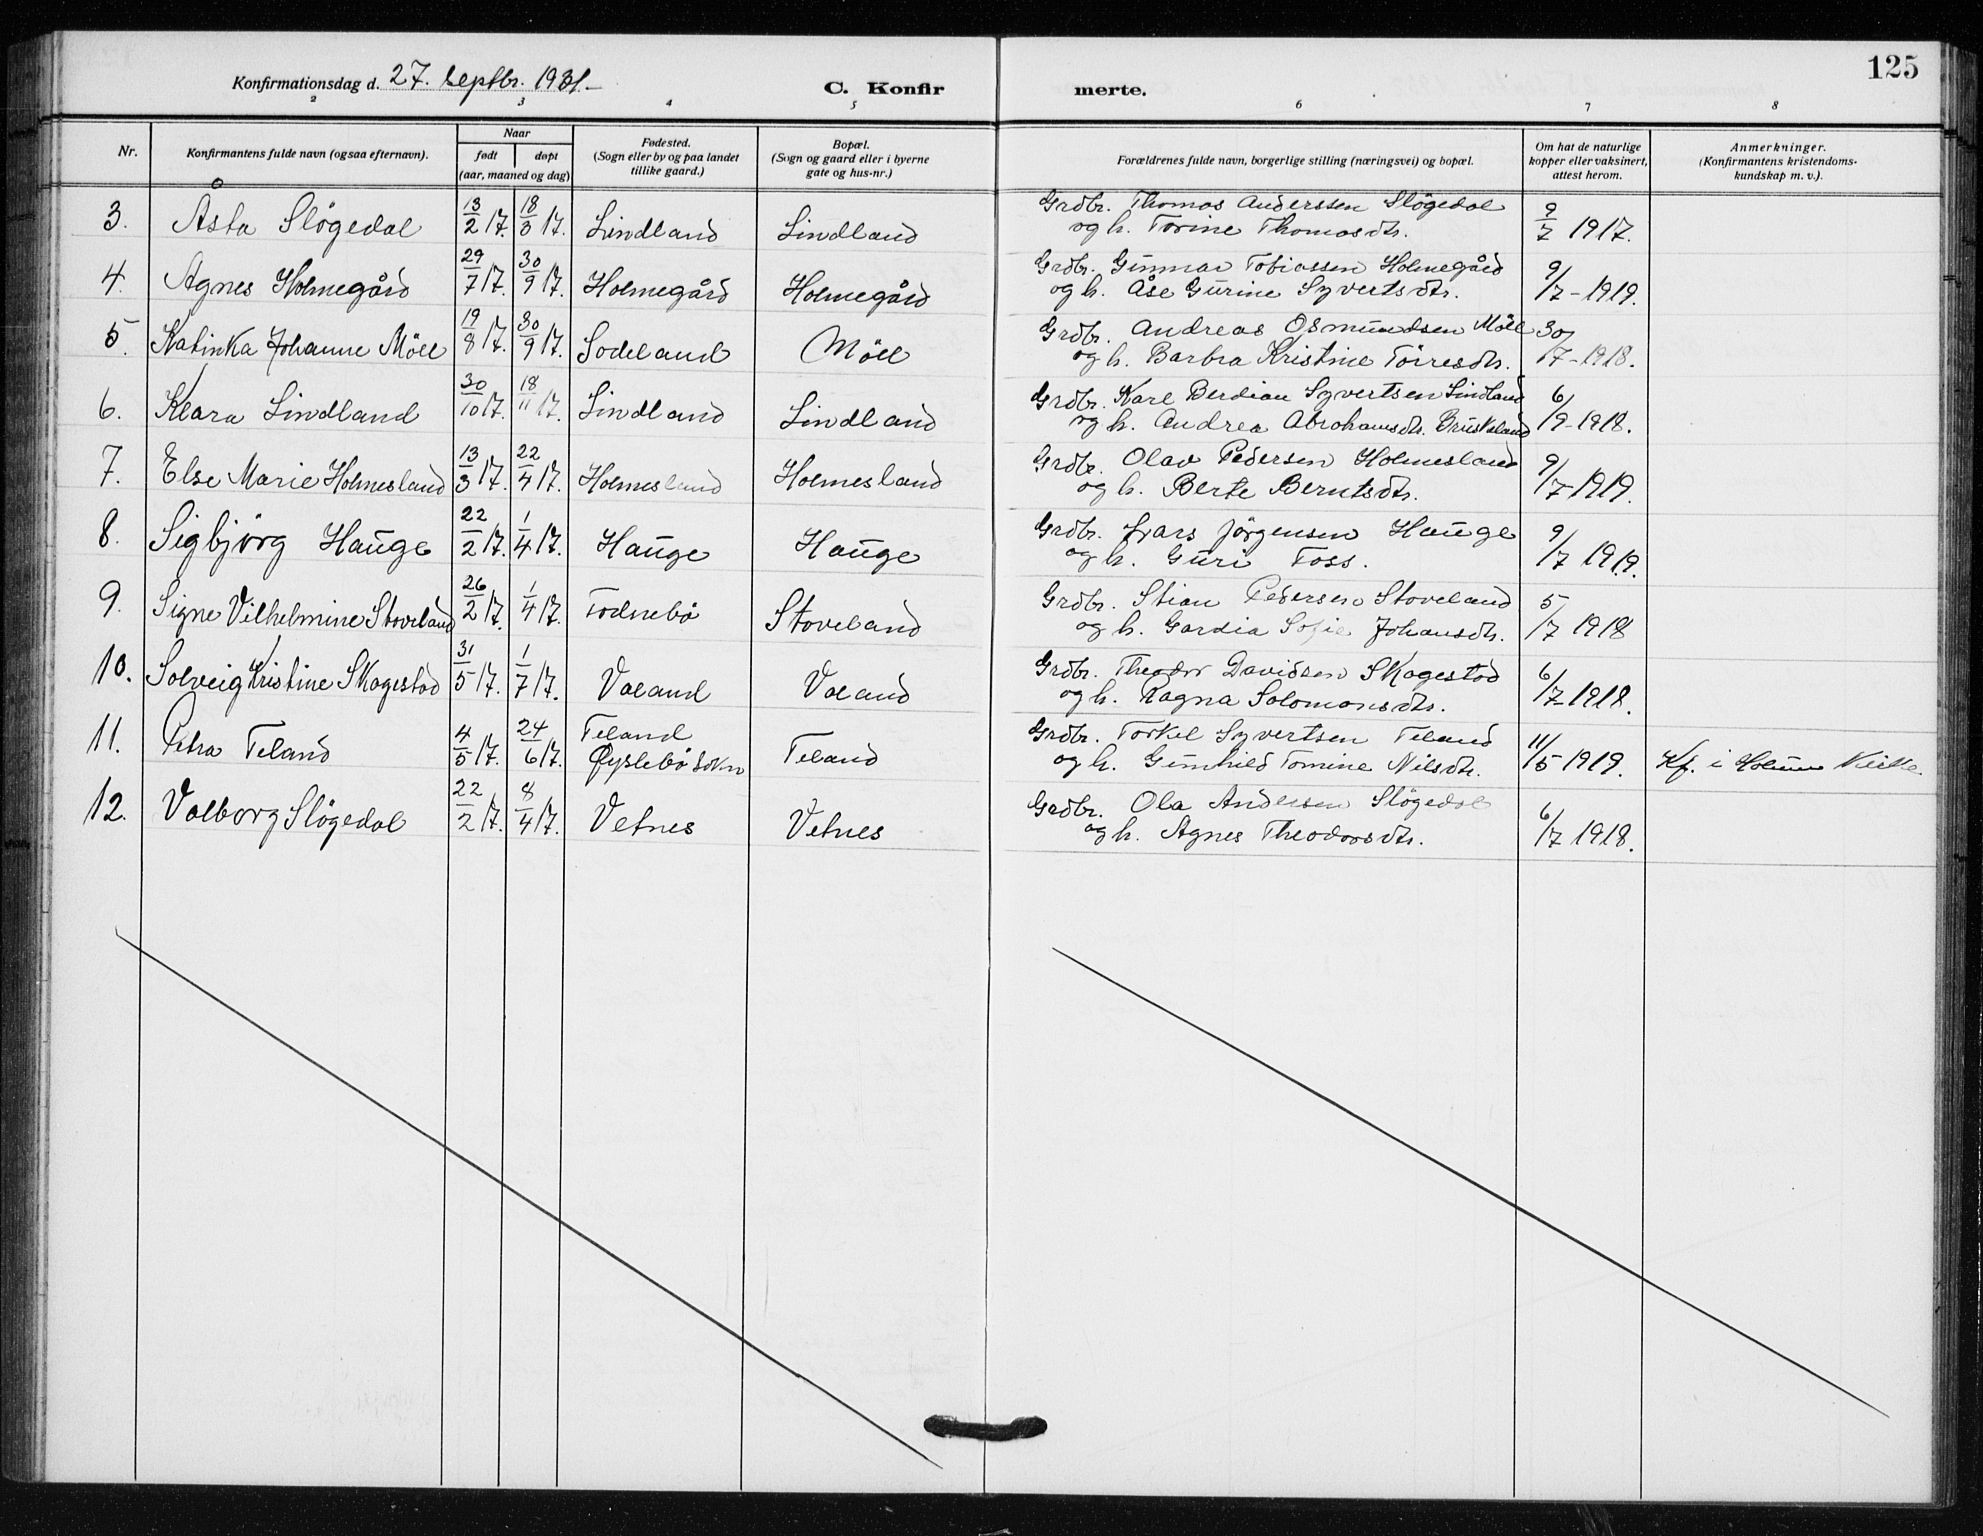 125
Konfirmationsdag d. 27. Septbr. 1931.
C. Konfirmerte.
2 3 4 5 6 7 8
Nr. Konfirmantens fulde navn (ogsaa efternavn). Naar født døpt (aar, maaned og dag) Fødested. (Sogn eller by og paa landet tillike gaard.) Bopæl. (Sogn og gaard eller i byerne gate og hus-nr.) Forældrenes fulde navn, borgerlige stilling (næringsvei) og bopæl. Om hat de naturlige kopper eller vaksinert, attest herom. Anmerkninger. (Konfirmantens kristendomskundskap m. v.).
3. Åsta Slögedal 13/2 17. 18/3 17. Lindland Lindland Grdbr. Thomas Anderssen Slögedal 9/7 1917.
og h. Torine Thomasdtr.
4. Agnes Holmegård 29/7 17. 30/9 17. Holmegård Holmegård Grdbr. Gunnar Tobiassen Holmegård 9/7-1919.
og h. Åse Gurine Syvertsdtr.
5. Katinka Johanne Möll 19/8 17. 30/9 17. Sodeland Möll Grdbr. Andreas Osmundsen Möll 30/7-1918.
og h. Barbra Kristine Törresdtr.
6. Klara Lindland 30/10 17. 18/11 17. Lindland Lindland Grdbr. Karl Berdian Syvertsen Lindland 6/9-1918.
og h. Andrea Abrahamsdtr. Bruskeland
7. Else Marie Holmesland 13/3 17. 22/4 17. Holmesland Holmesland Grdbr. Olav Pedersen Holmesland 9/7 1919.
og h. Berte Berntsdtr.
8. Sigbjörg Hauge 22/2 17. 1/4 17. Hauge Hauge Grdbr. Lars Jörgensen Hauge 9/7 1919.
og h. Guri Foss.
9. Signe Vilhelmine Stoveland 26/2 17. 1/4 17. Todnebö Stoveland Grdbr. Stian Pedersen Stoveland 5/7 1918
og h. Gardia Sofie Johansdtr.
10. Solveig Kristine Skagestad 31/5 17. 1/7 17. Valand Valand Grdbr. Theodor Davidsen Skagestad 6/7-1918.
og h. Ragna Solomonsdtr.
11. Petra Feland 4/5 17. 24/6 17. Feland Øyslebö sokn Feland Grdbr. Torkel Syvertsen Feland 11/5 1919. Kf. i Holum Kirke.
og h. Gunhild Tomine Nilsdtr.
12. Valborg Slögedal 22/2 17. 8/4 17. Vetnes Vetnes Grdbr. Ola Andersen Slögedal 6/7 1918.
og h. Agnes Theodorsdtr.